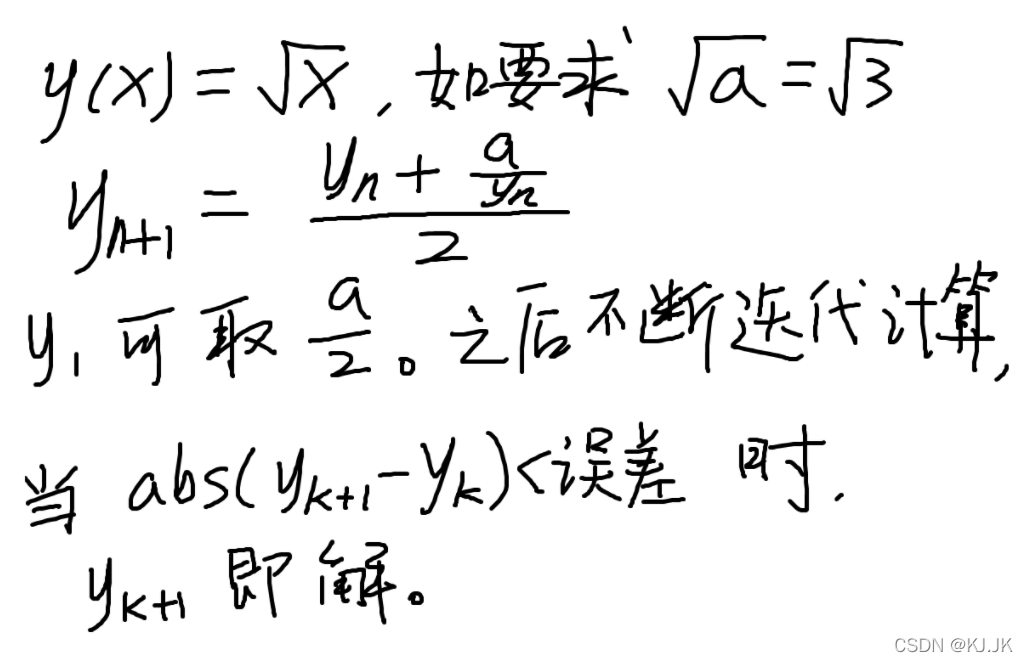 y(x) = √x , 如要求 √a = √3
yₙ₊₁ = (yₙ + a/yₙ)/2
y₁ 可取 a/2 。之后不断迭代计算,
当 abs(yₖ₊₁-yₖ)<误差 时.
yₖ₊₁ 即解。
CSDN @KJ.JK